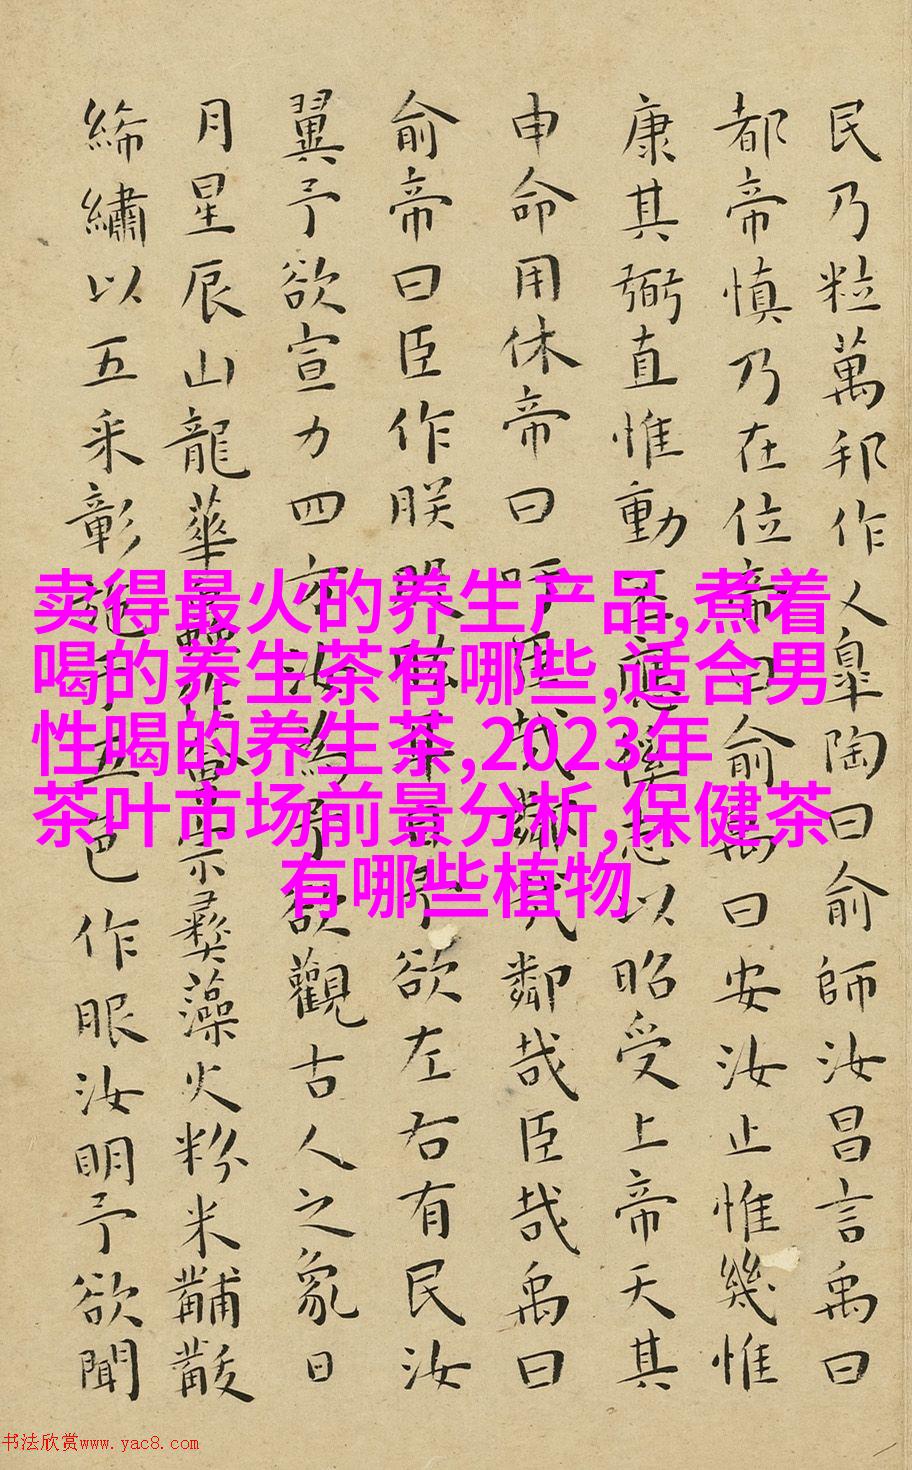 民乃粒萬邦作乂皐陶曰俞師汝昌言禹曰
都帝慎乃在位帝曰俞禹曰安汝止惟幾惟
康其弼直惟動丕應徯志以昭受上帝天其
申命用休帝曰吁臣哉鄰哉鄰哉臣哉禹曰
俞帝曰臣作朕股肱耳目予欲左右有民汝
翼予欲宣力四方汝為予欲觀古人之象日
月星辰山龍華蟲作會宗彝藻火粉米黼黻
絺繡以五采彰施于五色作服汝明予欲聞
卖得最火的养生产品,煮着
喝的养生茶有哪些,适合男
性喝的养生茶,2023年
茶叶市场前景分析,保健茶
有哪些植物
书法欣赏www.yac8.com